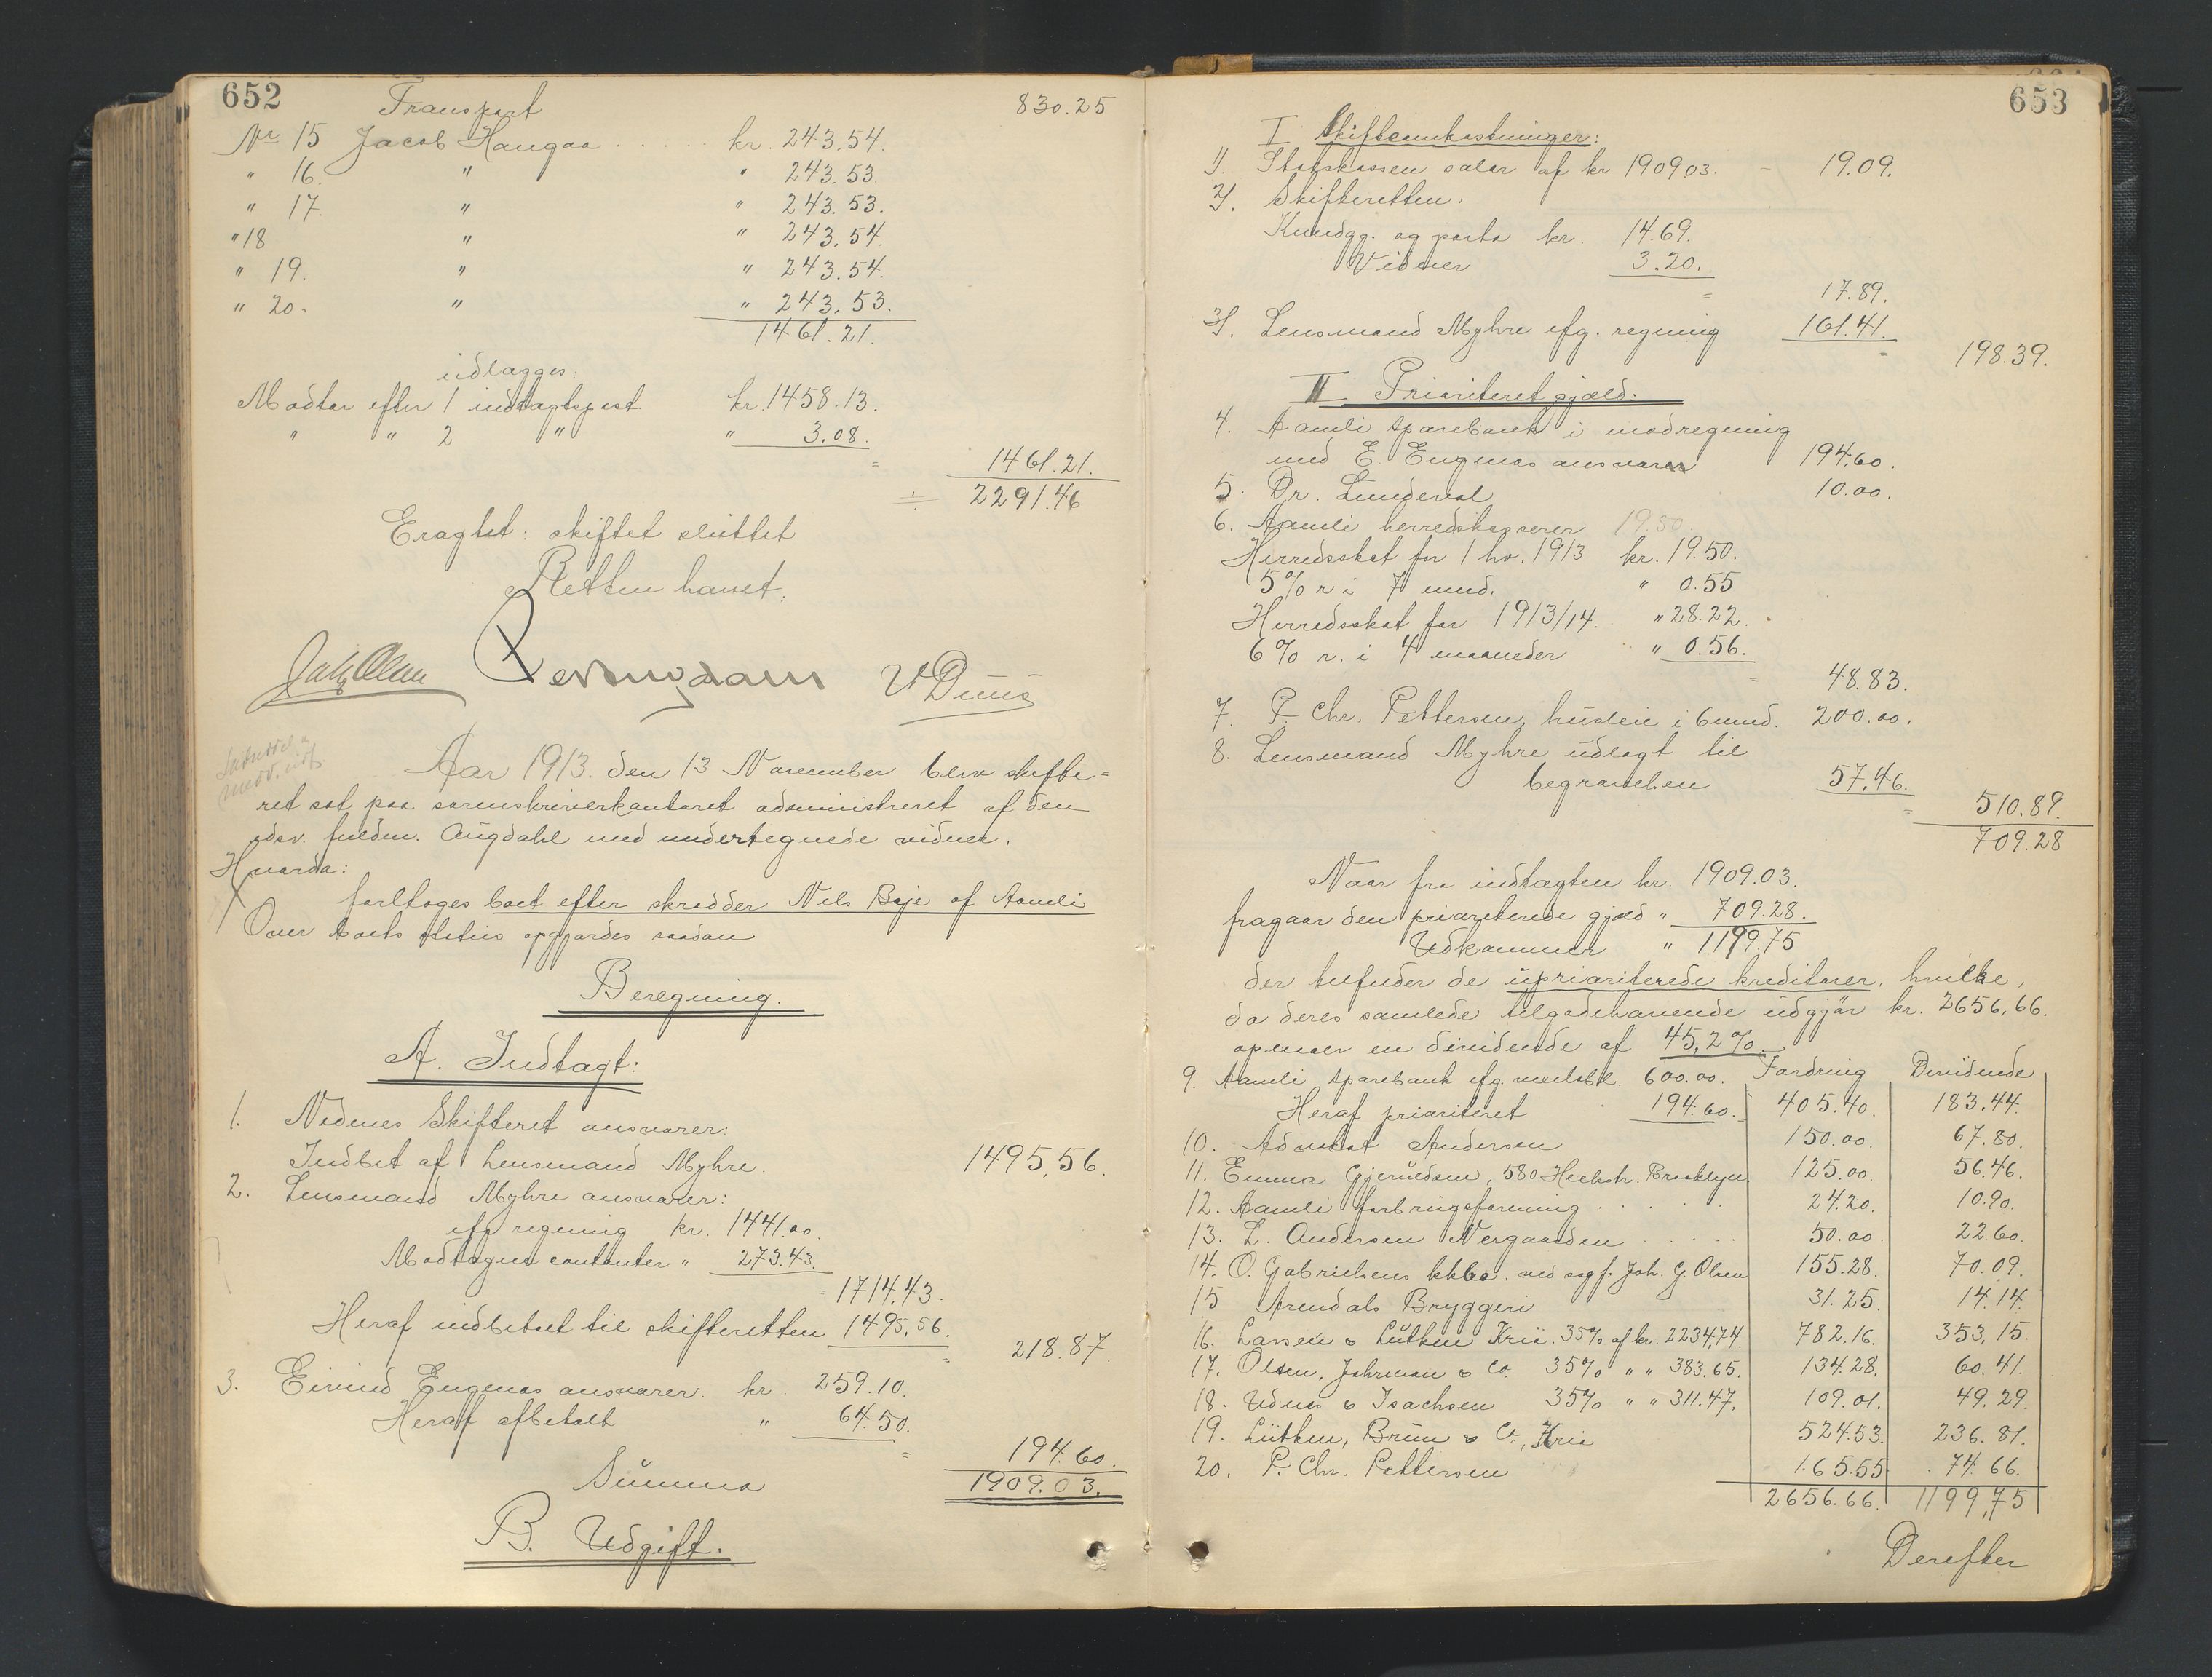 652
Transport 830.25
Nr 15 Jacob Haugaa . . . . . kr. 243.54.
" 16. " " 243.53.
" 17. " " 243.53.
" 18 " " 243.54.
" 19. " " 243.54.
" 20. " " 243.53.
1461.21.
udlægges:
Modtar efter 1 indtægtspost kr. 1458.13.
" " 2 " " 3.08.
= 1461.21.
÷ 2291.46
Eragtet: skiftet sluttet
Retten hævet.
Aar 1913. den 13 November blev skifte-
ret sat paa sorenskriverkontoret administreret af den
edsv. fuldm. Augdahl med undertegnede vidner.
Hvorda:
foretoges boet efter skrædder Nils Boje af Aamli
Over boets status opgjordes saadan
Beregning.
A. Indtægt:
1. Nedenes Skifteret ansvarer:
Indbet af Lensmand Myhre. 1495,56.
2. Lensmand Myhre ansvarer:
efg regning kr. 1441.00.
Modtagne contanter " 273.43.
= 1714,43.
Heraf indbetalt til skifteretten 1495,56.
= 218.87.
3. Eivind Engenæs ansvarer. kr. 259.10.
Heraf afbetalt " 64.50.
= 194.60.
Summa 1909.03.
B. Udgift.
653
I Skifteomkostninger:
1). Statskassen salær af kr 1909 03. - 19.09.
2). Skifteretten:
Kundgj. og porto kr. 14.69.
Vidner 3.20.
= 17.89.
3). Lensmand Myhre efg. regning 161.41.
= 198.39.
II Prioriteret gjæld:
4. Aamli sparebank i modregning
med E. Engenæs ansvarer 194.60.
5. Dr. Lundeval 10.00.
6. Aamli herredskasserer 19.50.
Herredsskat for 1 hv. 1913 kr. 19.50.
5% r i 7 mnd. " 0.55
Herredsskat for 1913/14. " 28.22.
6% r. i 4 maaneder " 0.56.
= 48.83.
7. P. Chr. Pettersen, husleie i 6 mnd. 200.00.
8. Lensmand Myhre udlagt til
begravelsen 57.46.
= 510.89.
709.28
Naar fra indtægten kr. 1909.03.
fragaar den prioriterede gjæld " 709.28.
Udkommer " 1199.75
der tilfalder de uprioriterede kreditorer, hvilke,
da deres samlede tilgodehavende udgjør kr. 2656,66.
opnaar en dividende af 45,2%.
Fordring Dividende
9. Aamli sparebank efg. vexelobl. 600.00.
Heraf prioriteret 194.60. 405.40. 183.44.
10. Advokat Andersen 150.00. 67.80.
11. Emma Gjeruldsen, 580 Hickstr. Brooklyn 125.00. 56.46.
12. Aamli forbrugsforening . . . . . 24.20. 10.90.
13. L. Andersen Nergaarden . . . . . 50.00. 22.60.
14. O. Gabrielsens kkbo. ved sagf. Joh. G. Olsen 155.28. 70.09.
15 Arendals Bryggeri 31.25. 14.14.
16. Larsen & Lütken Kria. 35% af kr. 2234,74. 782.16. 353,15.
17. Olsen, Johrman & Co. 35% " " 383.65. 134.28. 60.41.
18. Udnæs & Isachsen 35% " " 311.47. 109.01. 49.29.
19. Lütken, Bruun & Co., Kria 524.53. 236.81.
20. P. Chr. Pettersen 165.55. 74.66.
2656.66. 1199,75
Derefter